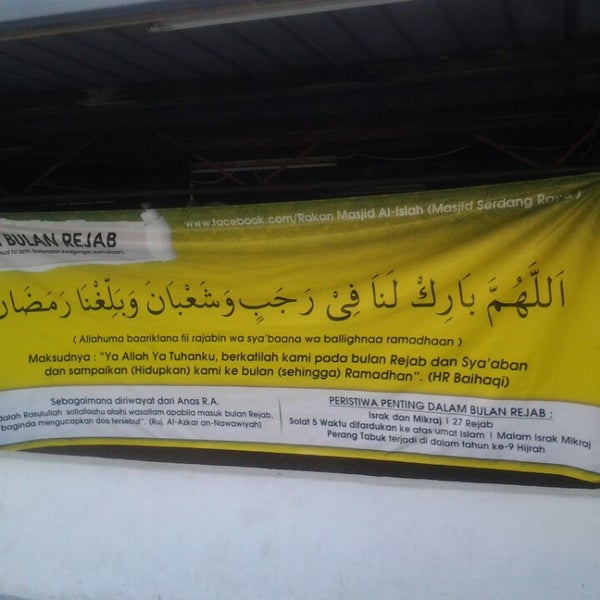 www.facebook.com/Rakan Masjid Al-Islah (Masjid Serdang Raya)
BULAN REJAB
اَللَّهُمَّ بَارِكْ لَنَا فِيْ رَجَبٍ وَشَعْبَانَ وَبَلِّغْنَا رَمَضَان
( Allahuma baariklana fii rajabin wa sya'baana wa ballighnaa ramadhaan )
Maksudnya : "Ya Allah Ya Tuhanku, berkatilah kami pada bulan Rejab dan Sya'aban
dan sampaikan (Hidupkan) kami ke bulan (sehingga) Ramadhan". (HR Baihaqi)
Sebagaimana diriwayat dari Anas R.A.
dalah Rasulullah sollallaahu alaihi wasallam apabila masuk bulan Rejab,
baginda mengucapkan doa tersebut". (Ruj. Al-Azkar an-Nawawiyah)
PERISTIWA PENTING DALAM BULAN REJAB :
Israk dan Mikraj | 27 Rejab
Solat 5 Waktu difardukan ke atas umat Islam | Malam Israk Mikraj
Perang Tabuk terjadi di dalam tahun ke-9 Hijrah